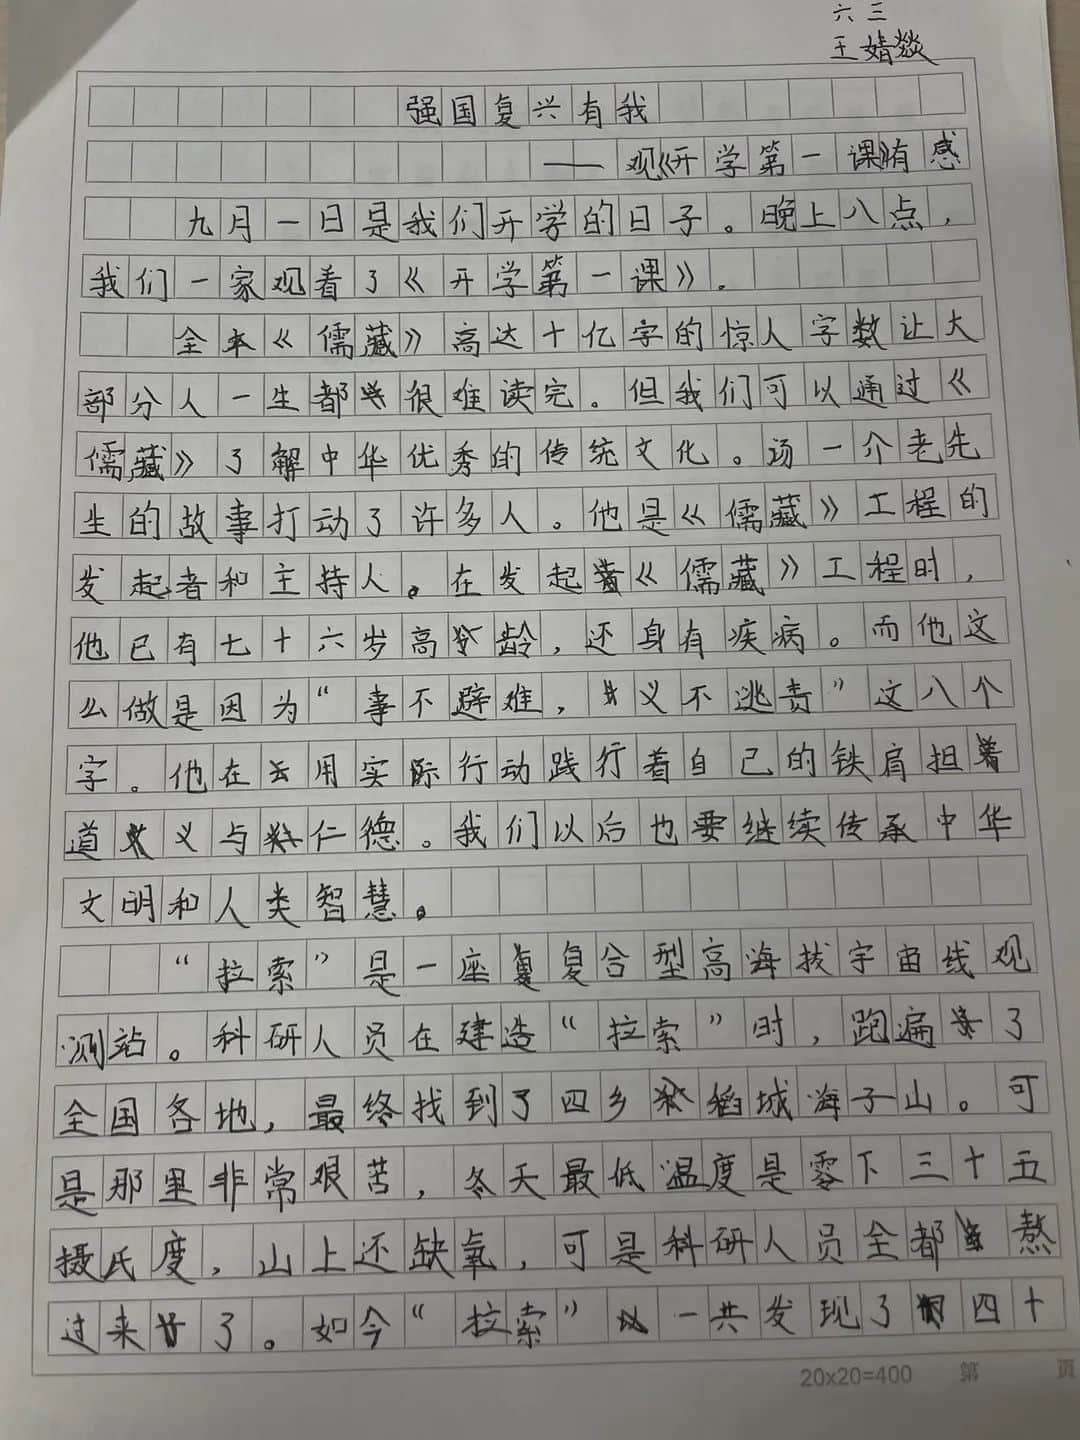 六三
王婧燚
强国复兴有我
——观《开学第一课》有感
九月一日是我们开学的日子。晚上八点，
我们一家观看了《开学第一课》。
全本《儒藏》高达十亿字的惊人字数让大
部分人一生都很难读完。但我们可以通过《
儒藏》了解中华优秀的传统文化。汤一介老先
生的故事打动了许多人。他是《儒藏》工程的
发起者和主持人。在发起《儒藏》工程时，
他已有七十六岁高龄，还身有疾病。而他这
么做是因为“事不避难，义不逃责”这八个
字。他在用实际行动践行着自己的铁肩担着
道义与仁德。我们以后也要继续传承中华
文明和人类智慧。
“拉索”是一座复合型高海拔宇宙线观
测站。科研人员在建造“拉索”时，跑遍了
全国各地，最终找到了四乡稻城海子山。可
是那里非常艰苦，冬天最低温度是零下三十五
摄氏度，山上还缺氧，可是科研人员全都熬
过来了。如今“拉索”一共发现了四十
20×20=400 第 页